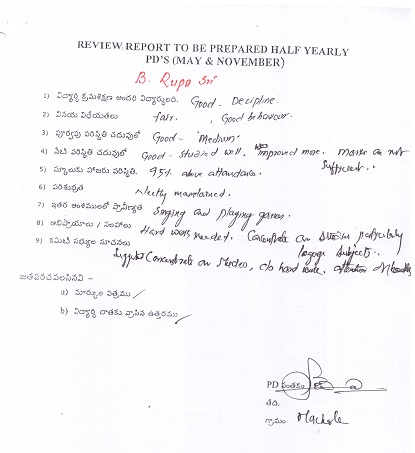 REVIEW REPORT TO BE PREPARED HALF YEARLY
PD'S (MAY & NOVEMBER)
B. Rupa Sri
1) విద్యార్థి క్రమశిక్షణ అందరి విద్యార్థులది. Good - Decipline.
2) వినయ విధేయతలు fair. , Good behaviour.
3) పూర్వపు పరిస్థితి చదువులో Good - "Medium"
4) నేటి పరిస్థితి చదువులో Good - studied well, improved more. Marks are not
sufficient..
5) స్కూలుకు హాజరు పరిస్థితి. 95% above attendance.
6) పరిశుభ్రత Neetly maintained.
7) ఇతర అంశములలో ప్రావీణ్యత Singing and playing games.
8) అభిప్రాయాలు / సలహాలు Hard work needed. Concentrate on studies, particularly
9) కమిటి సభ్యుల సూచనలు subjects..
Concentrate on studies, do hard work, attention
జతపరచవలసినవి –
a) మార్కుల పత్రము
b) విద్యార్థి దాతకు వ్రాసిన ఉత్తరము
PD సంతకం
తేది.
గ్రామం